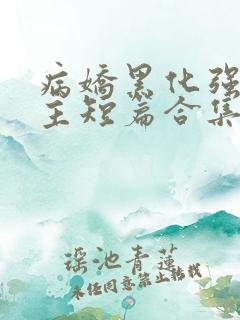 病娇黑化强
主短篇合集
瑶池青莲
未经同意禁止转载